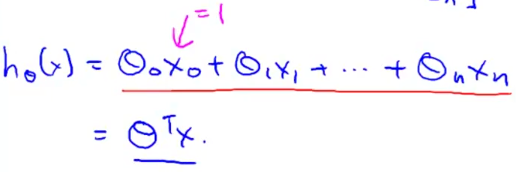 =1
h_θ(x) = θ₀x₀ + θ₁x₁ + ⋯ + θₙxₙ
= θᵀx.